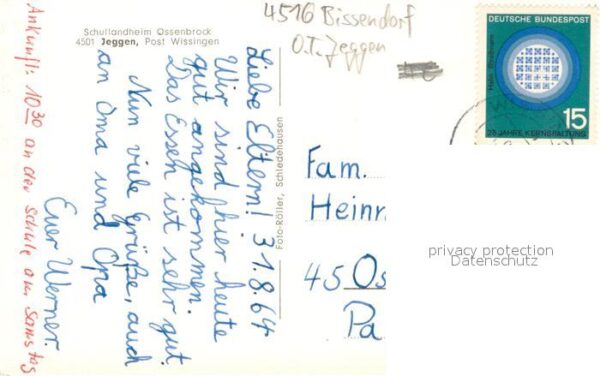 Schullandheim Ossenbrock
4501 Jeggen, Post Wissingen
4516 Bissendorf
O.T. Jeggen
DEUTSCHE BUNDESPOST
Hahn Straßmann
15
25 JAHRE KERNSPALTUNG
Liebe Eltern! 31.8.64
Wir sind hier heute
gut angekommen.
Das Essen ist sehr gut.
Nun viele Grüße, auch
an Oma und Opa
Euer Werner.
Ankunft: 10³⁰ an der Schule am Samstag
Foto-Rötter, Schledehausen
Fam.
Heinr
45 Os
Pa
privacy protection
Datenschutz